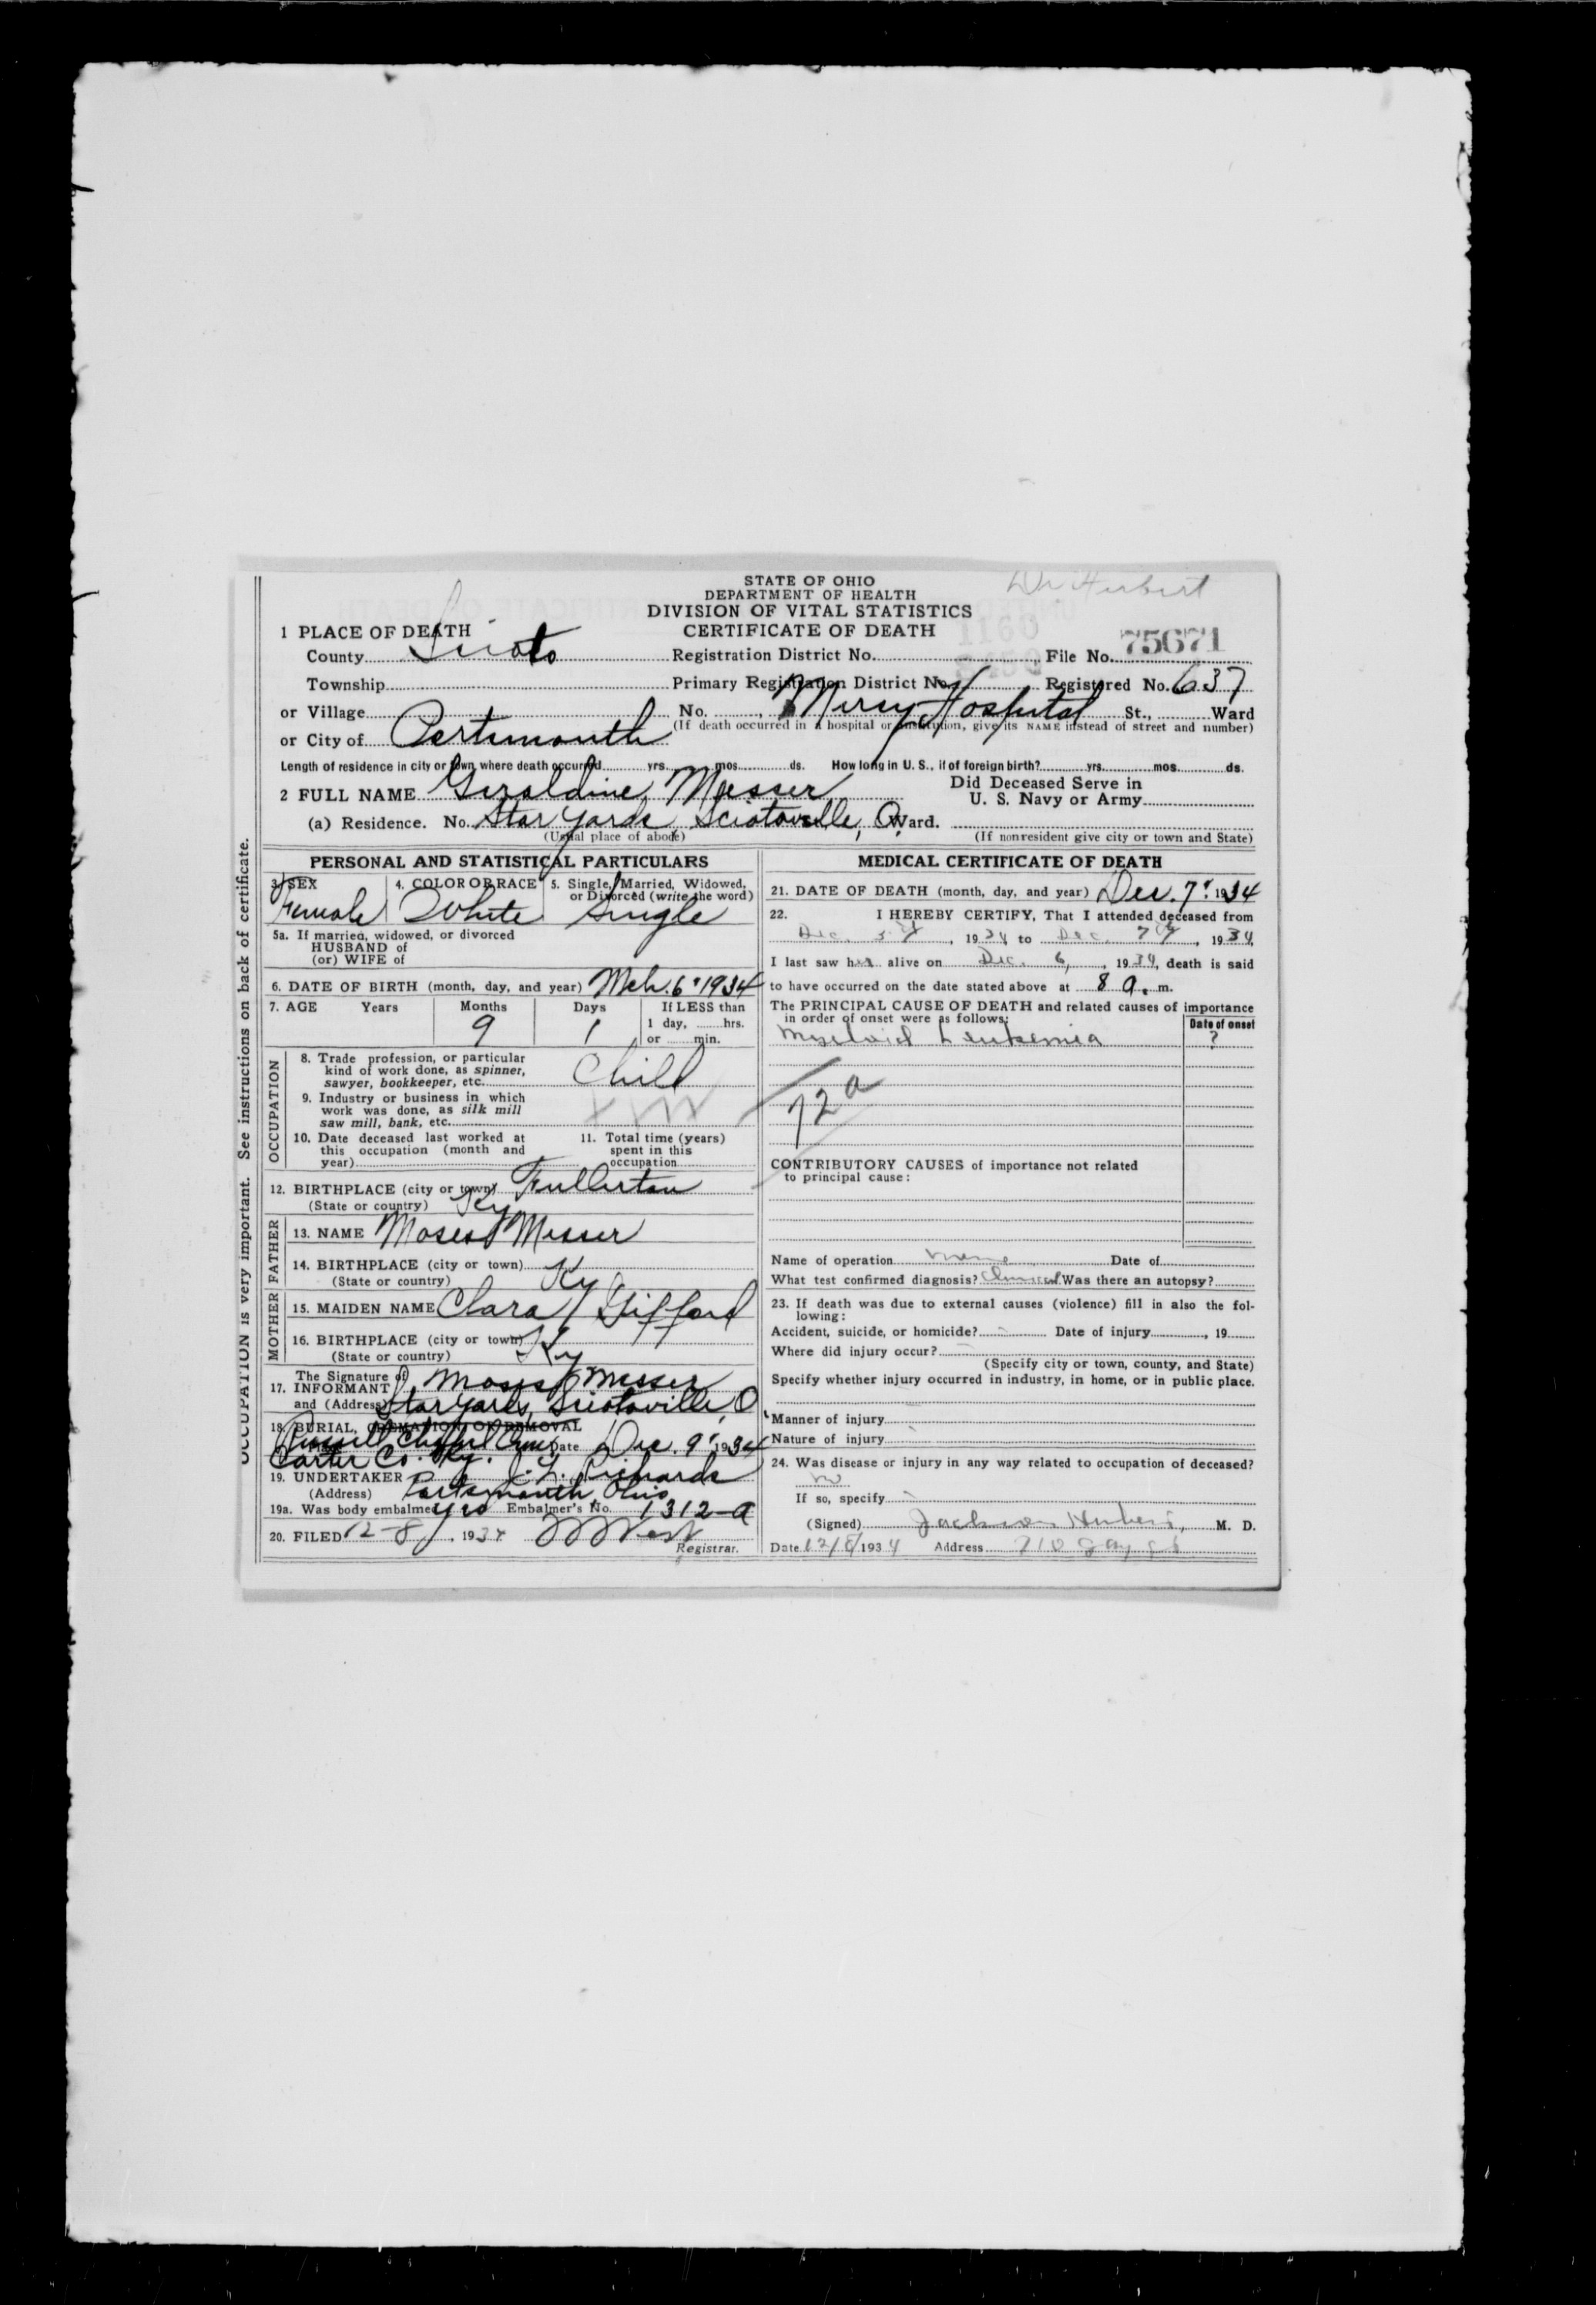 STATE OF OHIO
DEPARTMENT OF HEALTH
DIVISION OF VITAL STATISTICS
CERTIFICATE OF DEATH
Dr Herbert
1 PLACE OF DEATH
County Scioto Registration District No. 1160 File No. 75671
Township Primary Registration District No. Registered No. 637
or Village No. Mercy Hospital St., Ward
(If death occurred in a hospital or institution, give its NAME instead of street and number)
or City of Portsmouth
Length of residence in city or town where death occurred yrs. mos. ds. How long in U. S., if of foreign birth? yrs. mos. ds.
2 FULL NAME Geraldine Messer Did Deceased Serve in U. S. Navy or Army
(a) Residence. No. Star Yards Sciotoville, O. Ward.
(Usual place of abode) (If nonresident give city or town and State)
OCCUPATION is very important. See instructions on back of certificate.
PERSONAL AND STATISTICAL PARTICULARS
3. SEX 4. COLOR OR RACE 5. Single, Married, Widowed, or Divorced (write the word)
Female White Single
5a. If married, widowed, or divorced
HUSBAND of
(or) WIFE of
6. DATE OF BIRTH (month, day, and year) Mch. 6" 1934
7. AGE Years Months Days If LESS than
9 1 1 day, hrs.
or min.
OCCUPATION
8. Trade profession, or particular
kind of work done, as spinner,
sawyer, bookkeeper, etc. Child
9. Industry or business in which
work was done, as silk mill
saw mill, bank, etc.
10. Date deceased last worked at
this occupation (month and
year)
11. Total time (years)
spent in this
occupation
12. BIRTHPLACE (city or town) Fullerton
(State or country) Ky
FATHER
13. NAME Moses Messer
14. BIRTHPLACE (city or town)
(State or country) Ky
MOTHER
15. MAIDEN NAME Clara Gifford
16. BIRTHPLACE (city or town)
(State or country) Ky
The Signature of
17. INFORMANT Moses Messer
and (Address) Star Yards, Sciotoville, O
18. BURIAL, CREMATION OR REMOVAL
Chapel Cem. Date Dec. 9" 1934
Carter Co. Ky.
19. UNDERTAKER Richards
(Address) Portsmouth, Ohio
19a. Was body embalmed yes Embalmer's No. 1312-a
20. FILED 12-8, 1934 West
Registrar.
MEDICAL CERTIFICATE OF DEATH
21. DATE OF DEATH (month, day, and year) Dec. 7" 1934
22. I HEREBY CERTIFY, That I attended deceased from
Dec. , 1934 to Dec. 7, 1934,
I last saw her alive on Dec. 6, 1934, death is said
to have occurred on the date stated above at 8 a. m.
The PRINCIPAL CAUSE OF DEATH and related causes of importance
in order of onset were as follows: Date of onset
Myeloid Leukemia ?
72a
CONTRIBUTORY CAUSES of importance not related
to principal cause:
Name of operation none Date of
What test confirmed diagnosis? Clinical Was there an autopsy?
23. If death was due to external causes (violence) fill in also the fol-
lowing:
Accident, suicide, or homicide? Date of injury , 19
Where did injury occur?
(Specify city or town, county, and State)
Specify whether injury occurred in industry, in home, or in public place.
Manner of injury
Nature of injury
24. Was disease or injury in any way related to occupation of deceased?
no
If so, specify
(Signed) M. D.
Date 12/8/1934 Address 710 Gay St